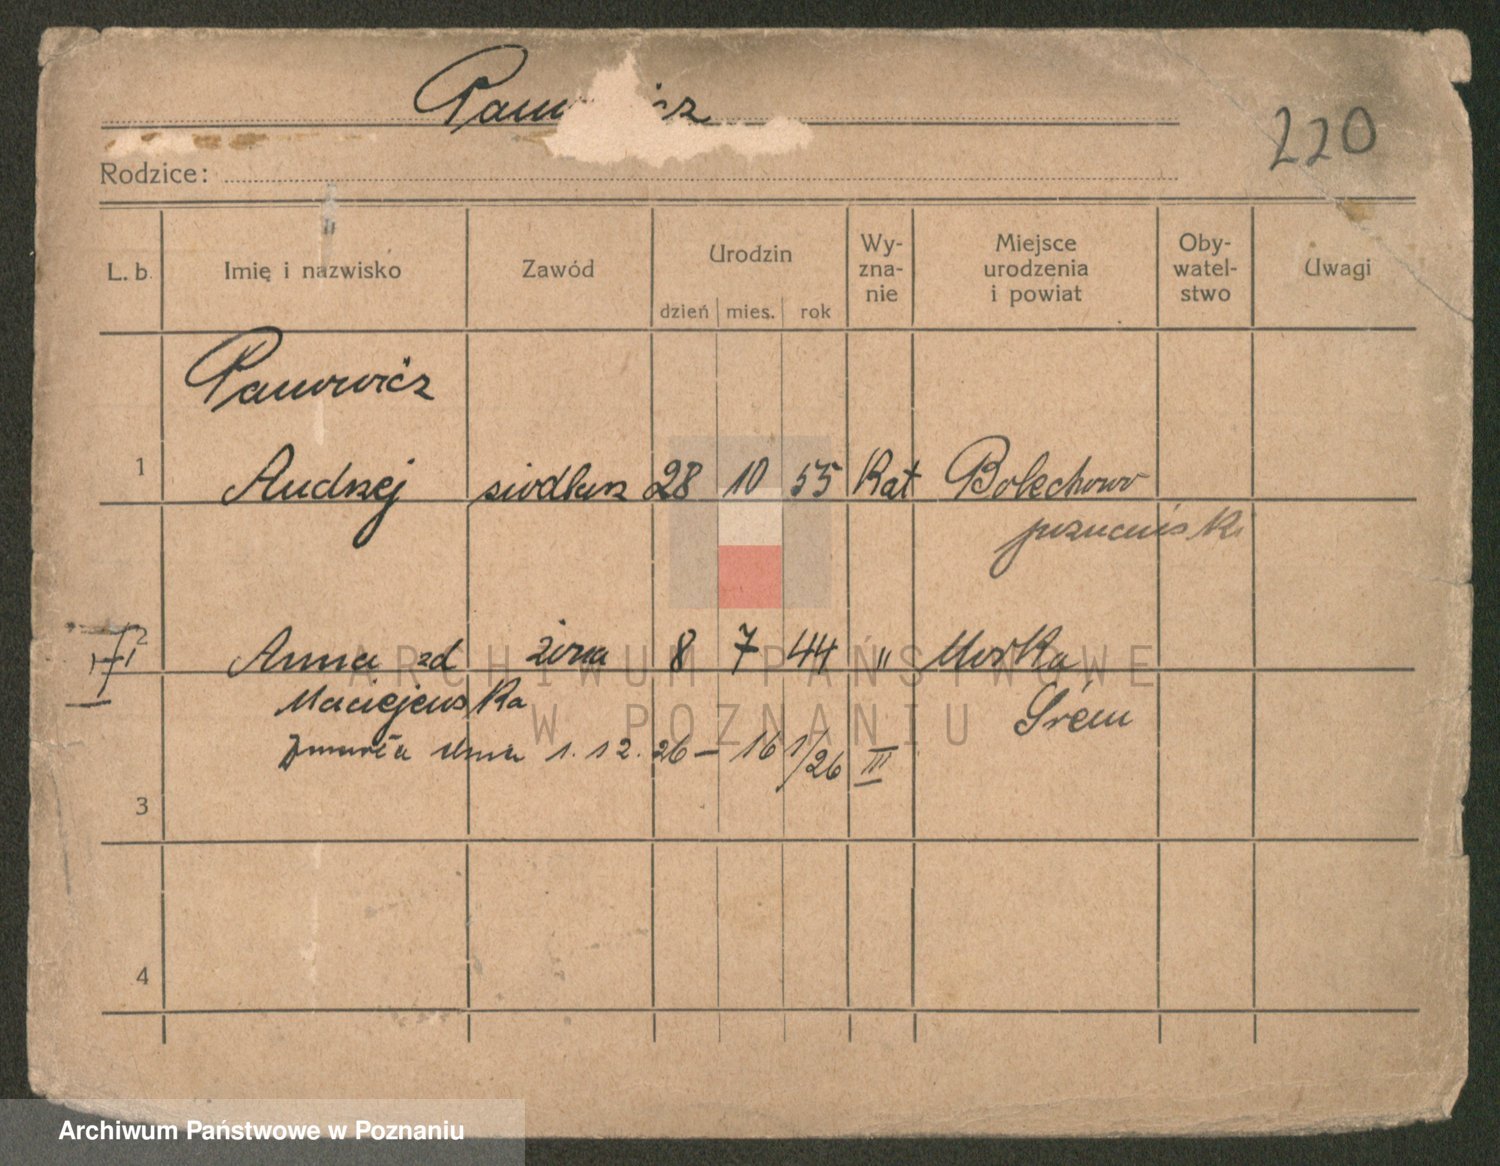 220
Rodzice:
L. b. Imię i nazwisko Zawód Urodzin dzień mies. rok Wy-zna-nie Miejsce urodzenia i powiat Oby-watel-stwo Uwagi
Panowicz
1 Andrzej siodlarz 28 10 55 Kat Bolechowo
poznański
2 Anna zd żona 8 7 44 " Mórka
Maciejewska Śrem
Zmarła dnia 1. 12. 26 – 16 1/26 III
3
4
ARCHIWUM PAŃSTWOWE
W POZNANIU
Archiwum Państwowe w Poznaniu